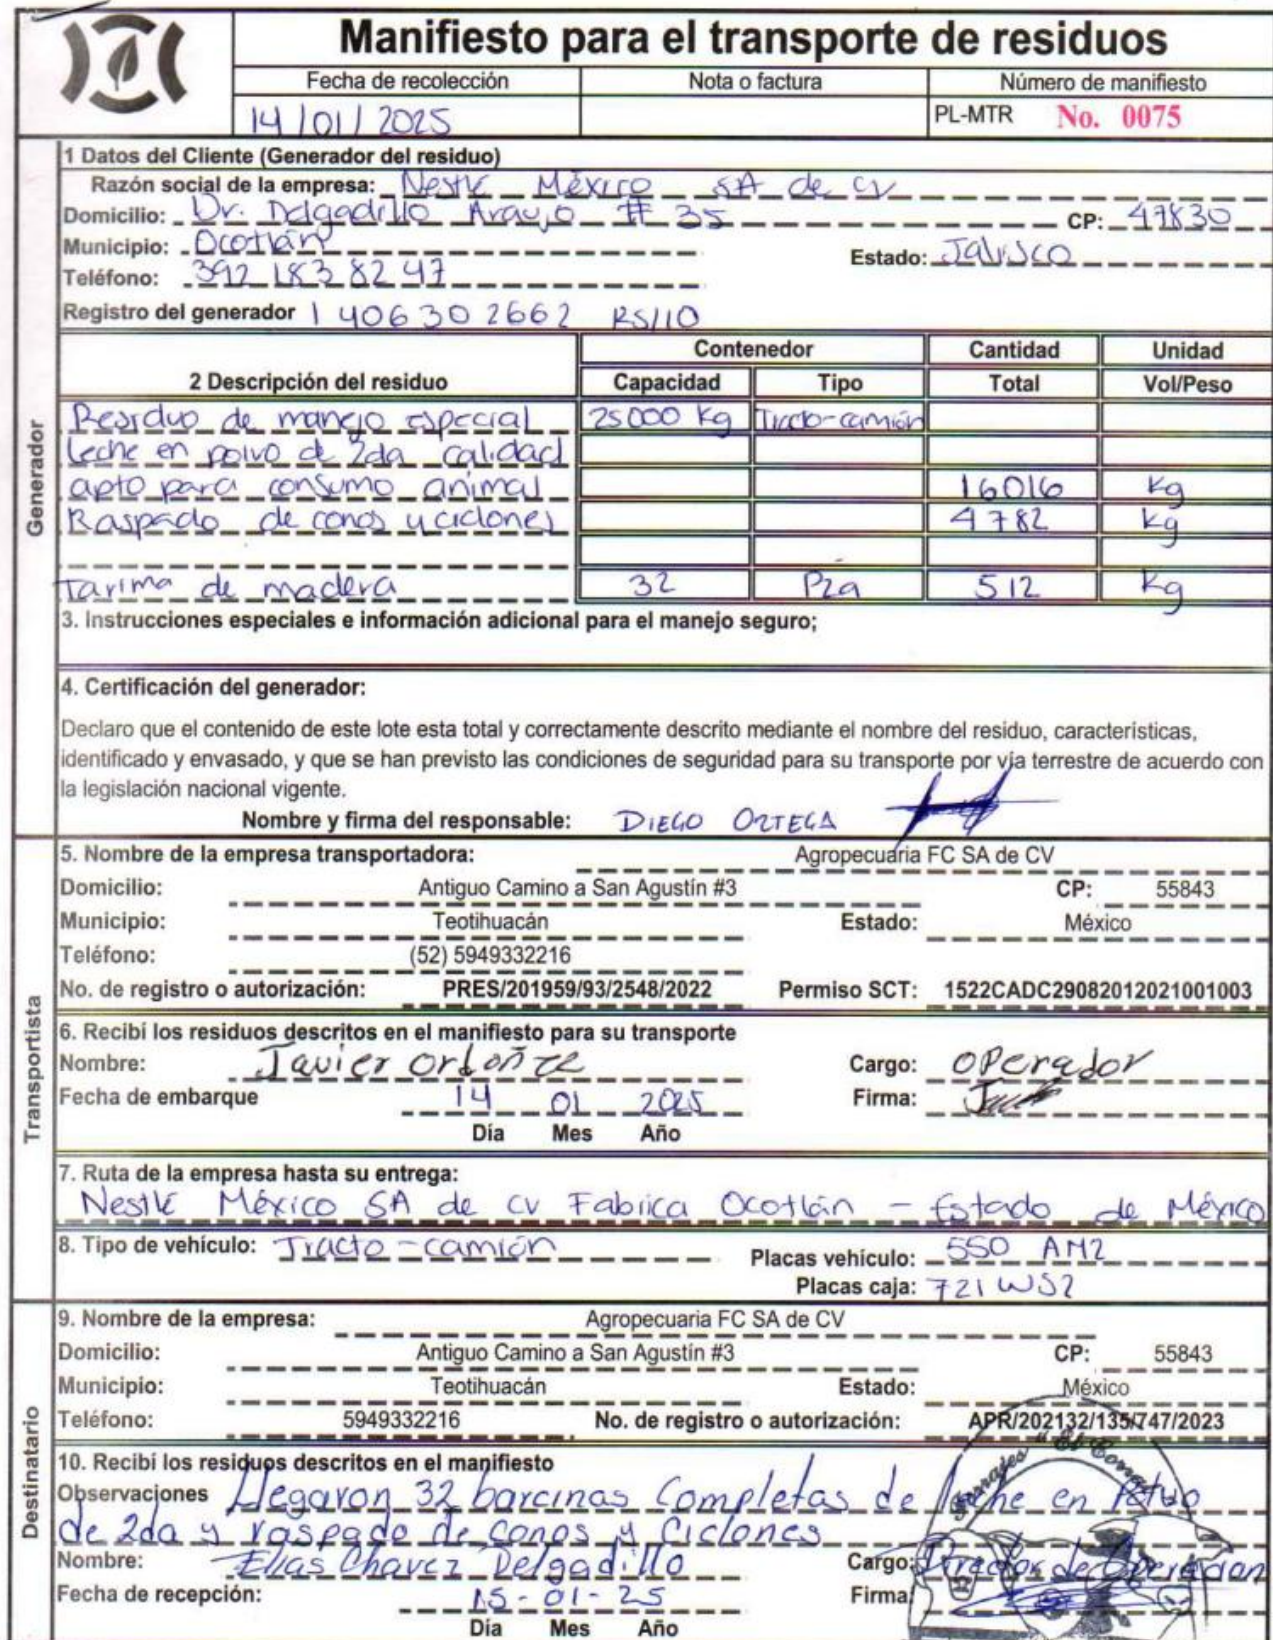 Manifiesto para el transporte de residuos
Fecha de recolección Nota o factura Número de manifiesto
14/01/2025 PL-MTR No. 0075
Generador
1 Datos del Cliente (Generador del residuo)
Razón social de la empresa: Nestlé México SA de CV
Domicilio: Dr. Delgadillo Araujo # 35 CP: 47830
Municipio: Ocotlán Estado: Jalisco
Teléfono: 392 183 82 47
Registro del generador 1 406302662 RS/10
2 Descripción del residuo Contenedor Cantidad Unidad
Capacidad Tipo Total Vol/Peso
Residuo de manejo especial 25000 Kg Tracto-camión
Leche en polvo de 2da calidad
apto para consumo animal 16016 Kg
Raspado de conos y ciclones 4782 Kg
Tarima de madera 32 Pza 512 Kg
3. Instrucciones especiales e información adicional para el manejo seguro;
4. Certificación del generador:
Declaro que el contenido de este lote esta total y correctamente descrito mediante el nombre del residuo, características,
identificado y envasado, y que se han previsto las condiciones de seguridad para su transporte por vía terrestre de acuerdo con
la legislación nacional vigente.
Nombre y firma del responsable: DIEGO ORTEGA
Transportista
5. Nombre de la empresa transportadora: Agropecuaria FC SA de CV
Domicilio: Antiguo Camino a San Agustín #3 CP: 55843
Municipio: Teotihuacán Estado: México
Teléfono: (52) 5949332216
No. de registro o autorización: PRES/201959/93/2548/2022 Permiso SCT: 1522CADC29082012021001003
6. Recibí los residuos descritos en el manifiesto para su transporte
Nombre: Javier Ordoñze Cargo: Operador
Fecha de embarque 14 01 2025 Firma:
Día Mes Año
7. Ruta de la empresa hasta su entrega:
Nestlé México SA de CV Fabrica Ocotlán - Estado de México
8. Tipo de vehículo: Tracto-camión Placas vehículo: 550 AM2
Placas caja: 721 WS2
Destinatario
9. Nombre de la empresa: Agropecuaria FC SA de CV
Domicilio: Antiguo Camino a San Agustín #3 CP: 55843
Municipio: Teotihuacán Estado: México
Teléfono: 5949332216 No. de registro o autorización: APR/202132/135/747/2023
Forrajes "El Corral
10. Recibí los residuos descritos en el manifiesto
Observaciones Llegaron 32 barcinas Completas de leche en Polvo
de 2da y raspado de Conos y Ciclones
Nombre: Elias Chavez Delgadillo Cargo: Director de Operacion
Fecha de recepción: 15-01-25 Firma:
Día Mes Año